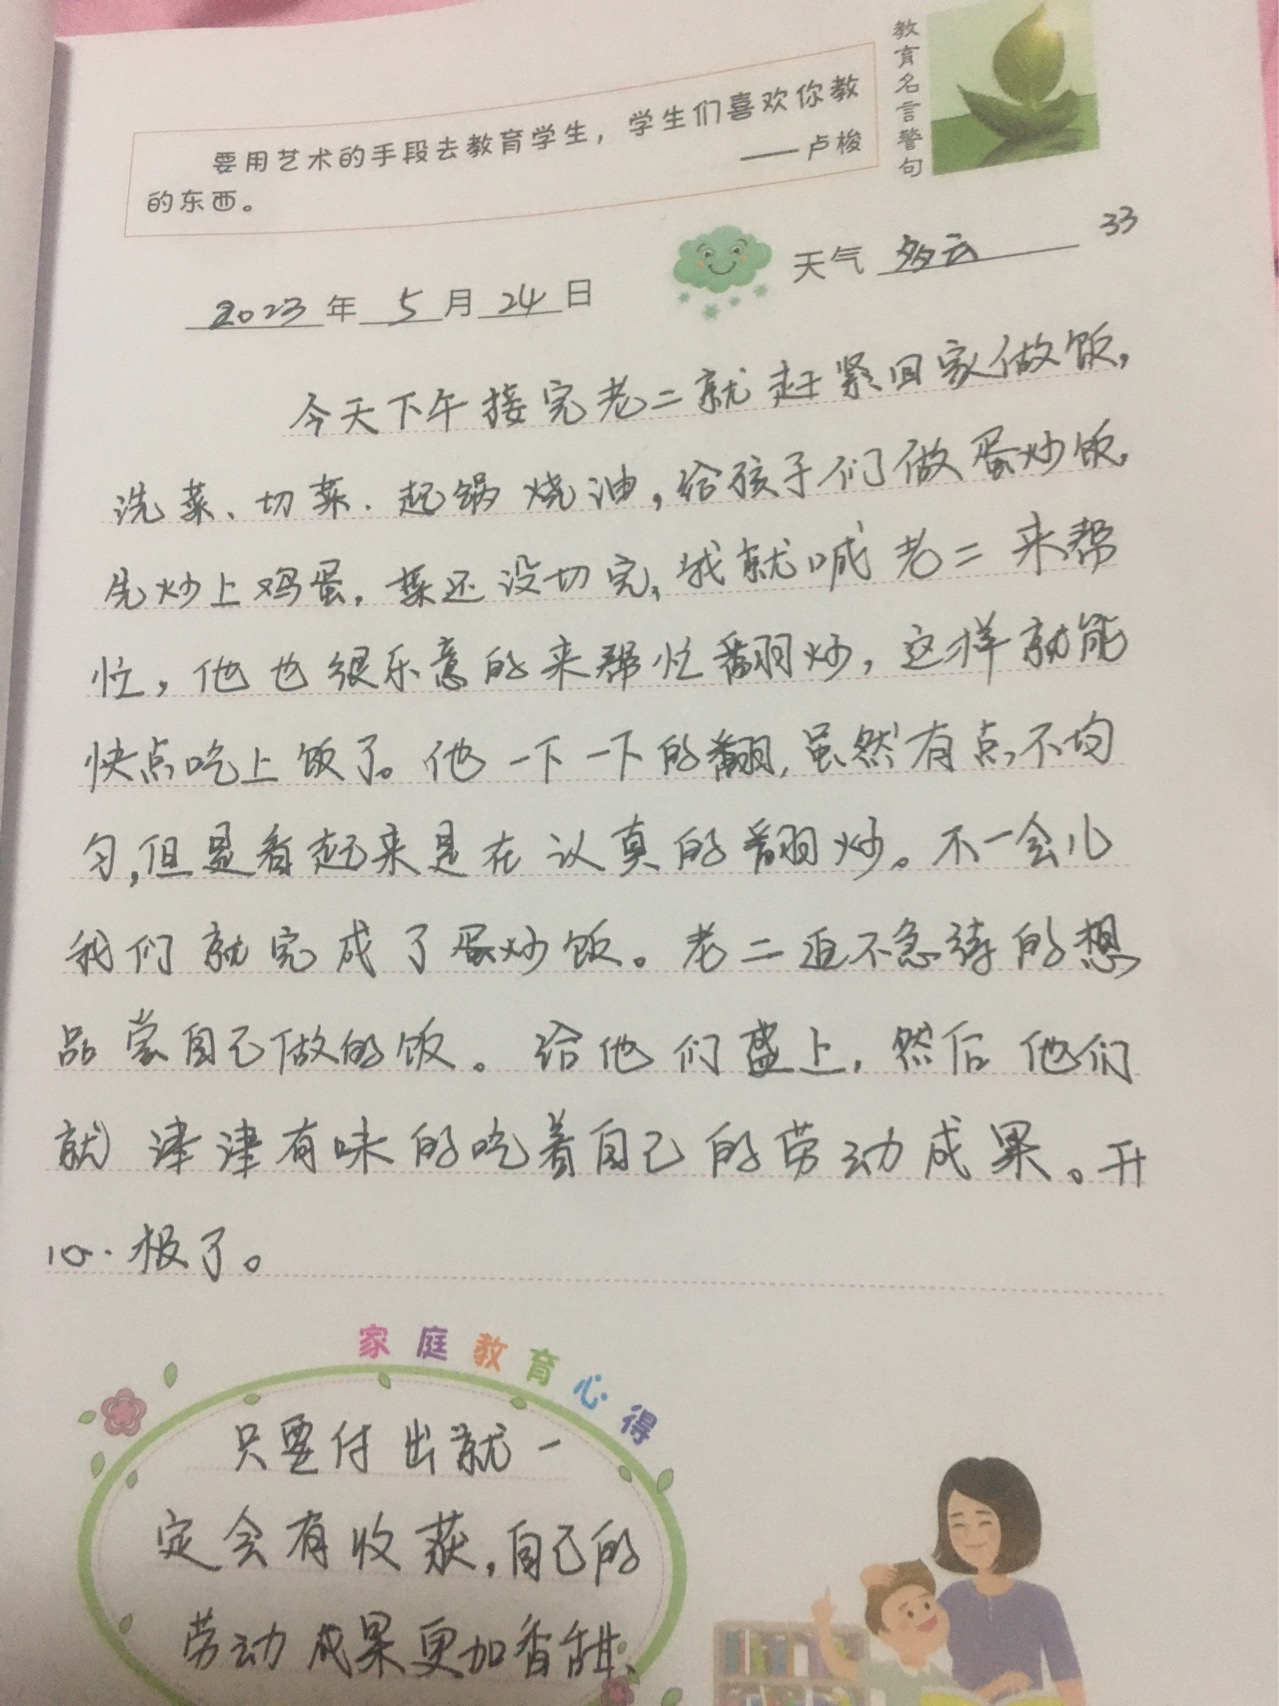 教育名言警句
要用艺术的手段去教育学生，学生们喜欢你教
的东西。
——卢梭
2023年5月24日
天气 多云
33
今天下午接完老二就赶紧回家做饭，
洗菜、切菜.起锅烧油，给孩子们做蛋炒饭，
先炒上鸡蛋，菜还没切完，我就喊老二来帮
忙，他也很乐意的来帮忙翻炒，这样就能
快点吃上饭了。他一下一下的翻，虽然有点不均
匀，但是看起来是在认真的翻炒。不一会儿
我们就完成了蛋炒饭。老二迫不急待的想
品尝自己做的饭。给他们盛上，然后他们
就津津有味的吃着自己的劳动成果。开
心极了。
家庭教育心得
只要付出就一
定会有收获，自己的
劳动成果更加香甜、